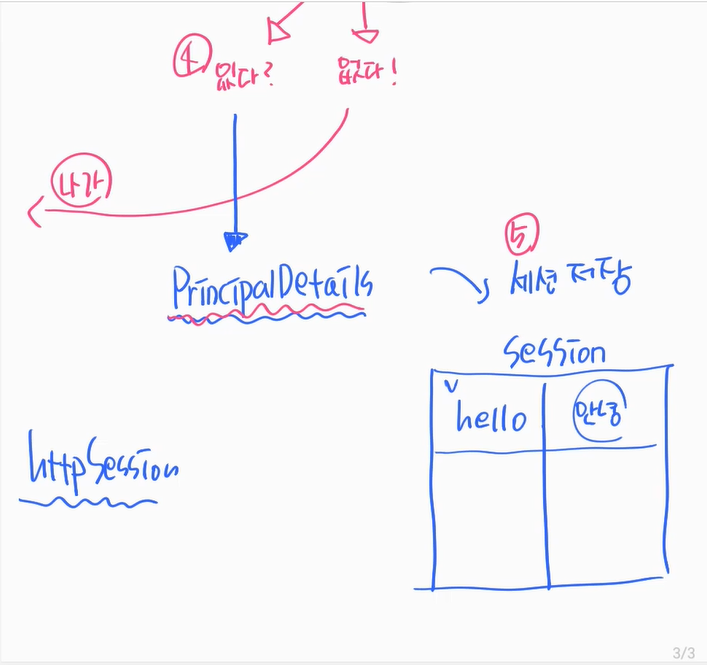 ④ 있다? 없다!
나가
PrincipalDetails
⑤
세션 저장
session
hello 안녕
httpSession
3/3